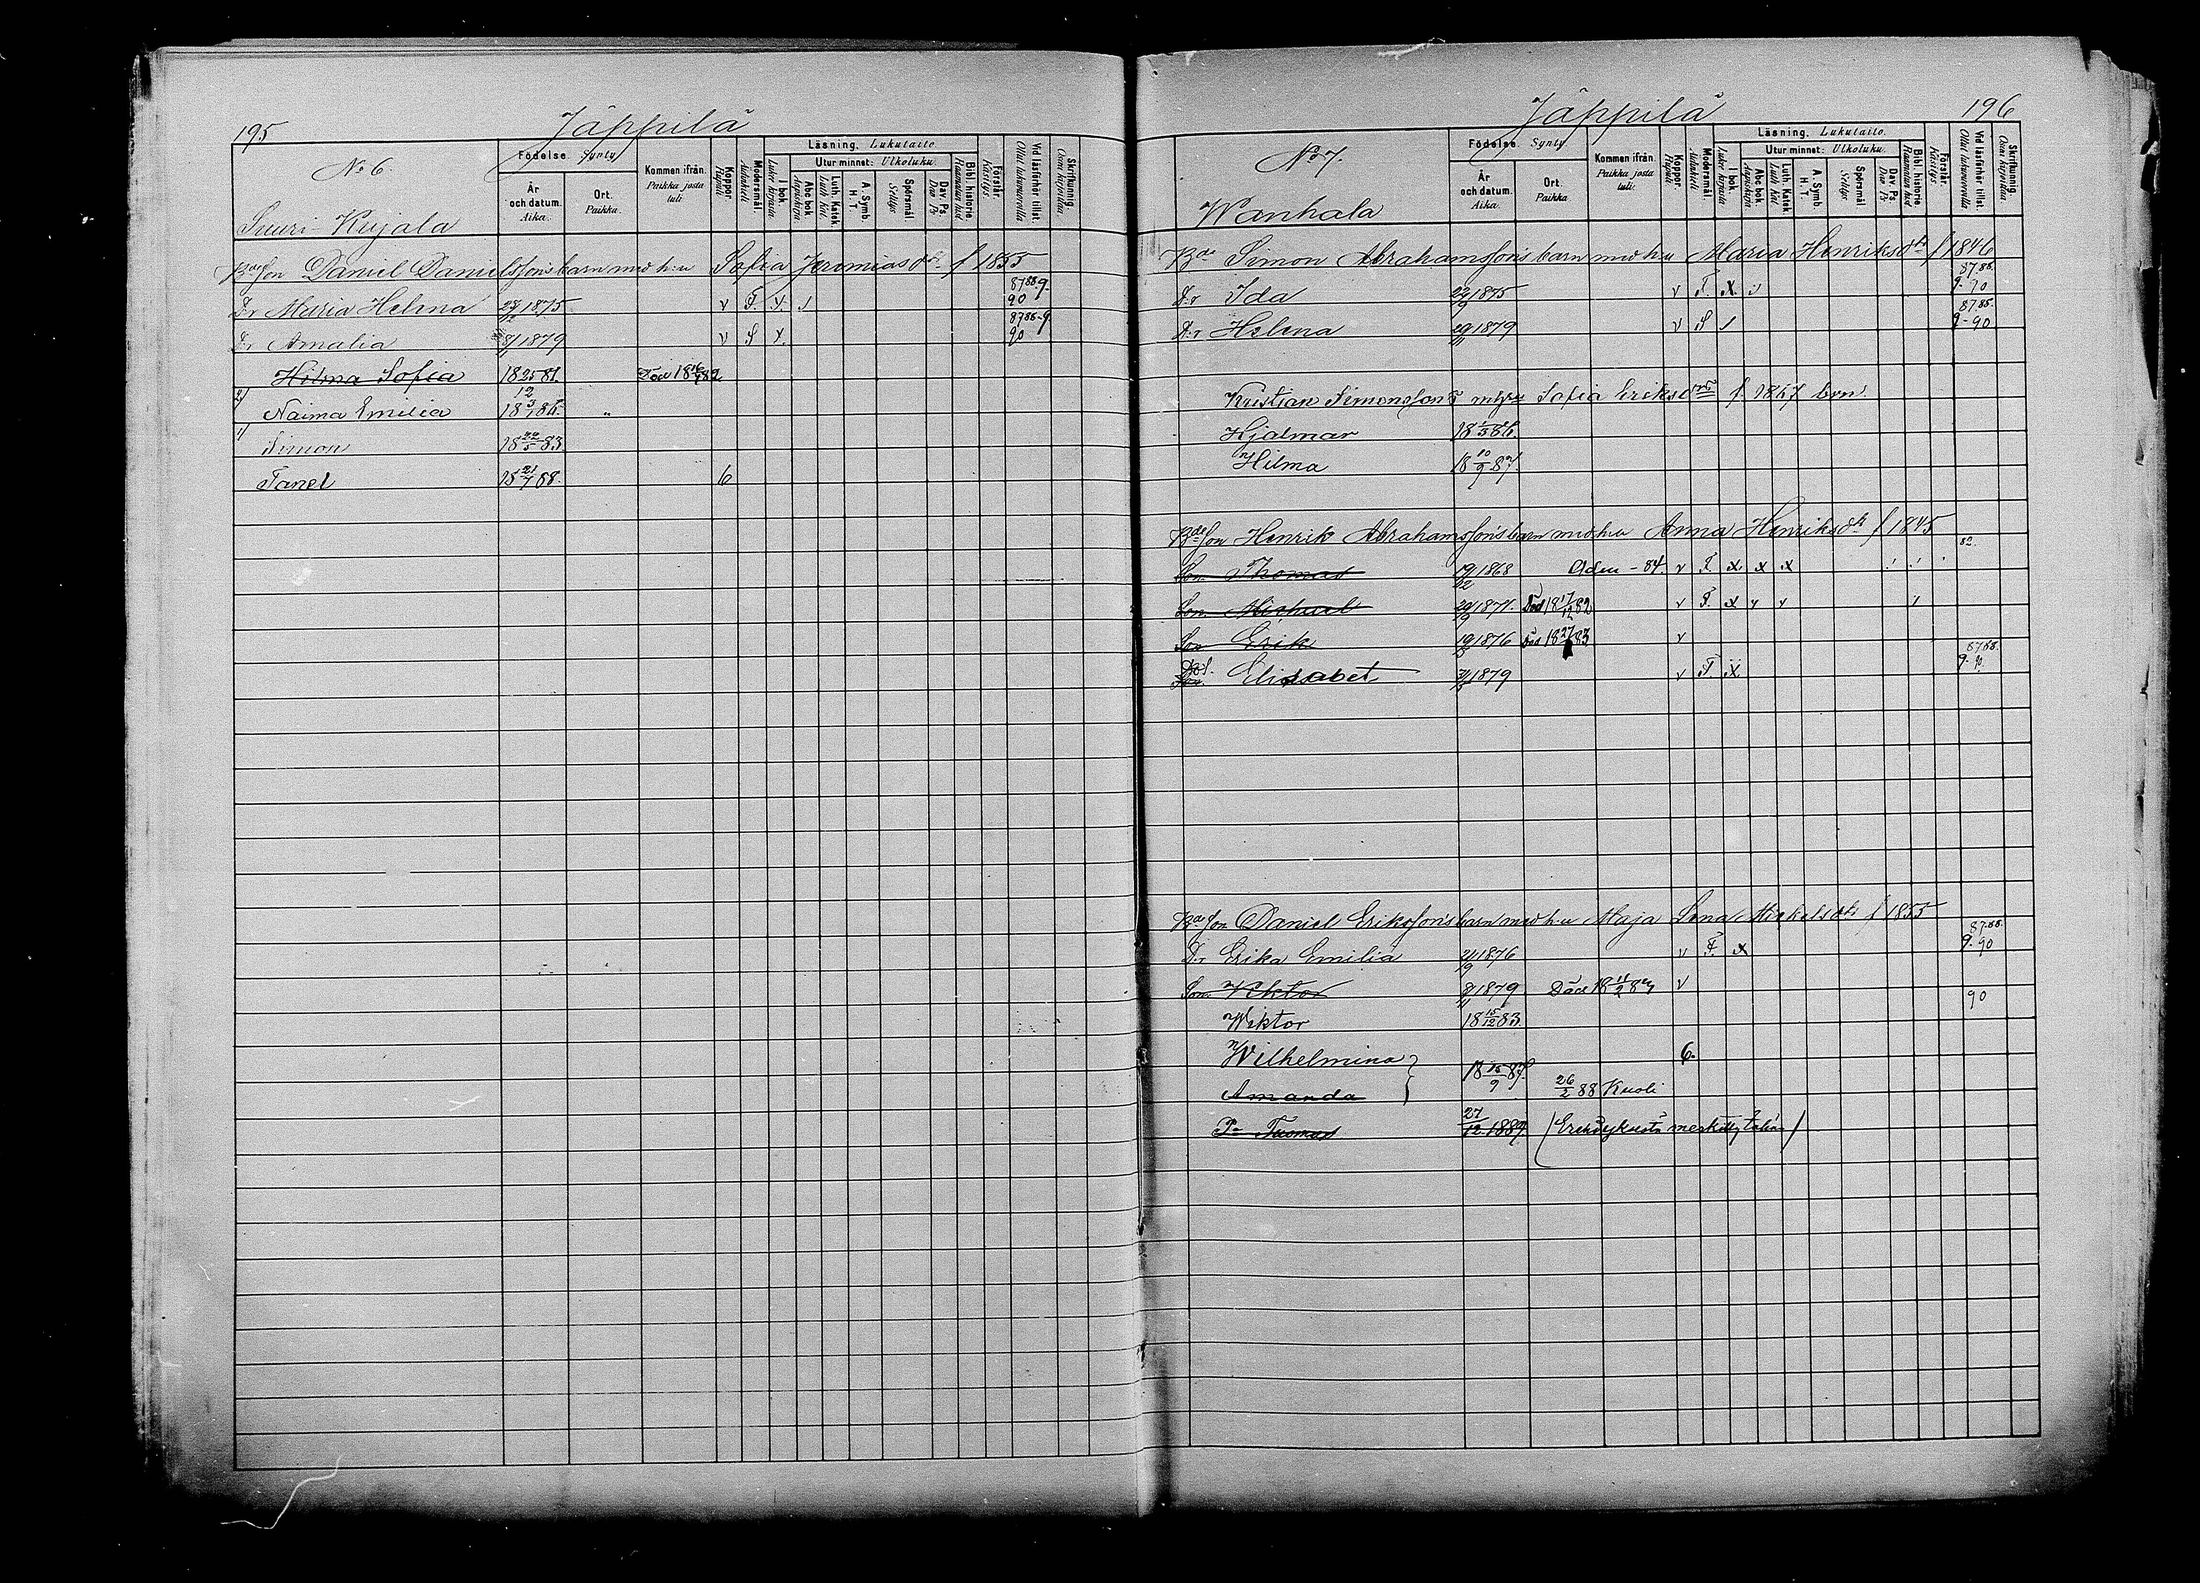 195
Jäppilä
No 6
Suuri-Kujala
Födelse. Synty.
År och datum. Aika.
Ort. Paikka.
Kommen ifrån. Paikka josta tuli
Koppor. Rupuli
Modersmål. Äidinkieli
Läsning. Lukutaito.
I bok. Lukee kirjasta
Utur minnet: Ulkoluku.
Abc bok Aapiskirja
Luth. Katek. Luth Kat.
A. Symb. H. T.
Spörsmål Selitys
Dav. Ps. Dav Ps
Bibl. historie Raamatun hist
Förstår. Käsitys.
Vid läsförhör tillst. Ollut lukuvuorolla
Skrifkunnig. Osaa kirjoittaa
Bde Son Daniel Danielssons barn med h:u Sofia Jeremiasdr f 1855
Dr Maria Helena 1875 v F. x. 87 88 9. 90
Dr Amalia 1879 v S x. 87 88-9 90
Hilma Sofia 18 25/12 81. Död 18 82
2/ Naima Emilia 18 3/1 86. "
1/ Simon 18 22/5 83.
Fanel 18 21/7 88. 6
Jäppilä
196
No 7.
Wanhala
Födelse. Synty.
År och datum. Aika.
Ort. Paikka
Kommen ifrån. Paikka josta tuli:
Koppor. Rupuli
Modersmål. Äidinkieli
Läsning. Lukutaito.
I bok. Lukee kirjasta
Utur minnet: Ulkoluku.
Abc bok Aapiskirja
Luth. Katek Luth Kat.
A. Symb. H. T.
Spörsmål. Selitys
Dav. Ps. Dav Ps
Bibl. historie Raamatun hist
Förstår. Käsitys
Vid läsförhör tillst. Ollut lukuvuorolla
Skrifkunnig. Osaa kirjoittaa
Bde Simon Abrahamssons barn med h:u Maria Henriksdr f 1846
D:r Ida 1875 v F. x. 87.88. 9-90
D:r Helena 1879 v S 87.88. 9-90
Kristian Simonsson Sofia Eriksd f. 1867 barn
Hjalmar 18 1/3 86.
Hilma 18 10/9 87.
Bde Son Henrik Abrahamssons barn med h:u Anna Henriksdr f 1845
Son Thomas 19/12 1868 Aden - 84. v F x x x 82.
Son Michael 1871. Död 18 17/12 82 v F. x
Son Erik 1876 Död 18 27 83 v
Elisabet 1879 v F x 87.88. 9-90
Bde Son Daniel Erikssons barn med h:u Maja Lena Mickelsdr f 1855
D:r Erika Emilia 21/9 1876 v F. x 87.88. 9-90
Son. Viktor 8/11 1879 Död 18 v
Wiktor 18 15/12 83. 90
Wilhelmina 6.
18 15/9 87.
Amanda 26/2 88 Kuoli
P- Tuomas 27/12 1889